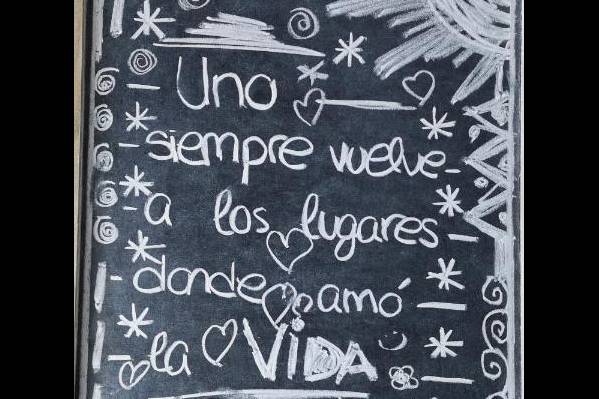 Uno
siempre vuelve
a los lugares
donde amó
la VIDA